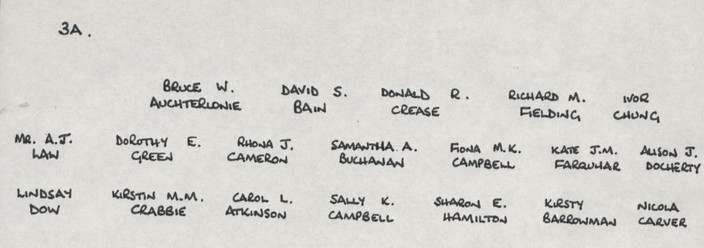 3A.
BRUCE W. DAVID S. DONALD R. RICHARD M. IVOR
AUCHTERLONIE BAIN CREASE FIELDING CHUNG
MR. A.J. DOROTHY E. RHONA J. SAMANTHA A. FIONA M.K. KATE J.M. ALISON J.
LAW GREEN CAMERON BUCHANAN CAMPBELL FARQUHAR DOCHERTY
LINDSAY KIRSTIN M.M. CAROL L. SALLY K. SHARON E. KIRSTY NICOLA
DOW CRABBIE ATKINSON CAMPBELL HAMILTON BARROWMAN CARVER